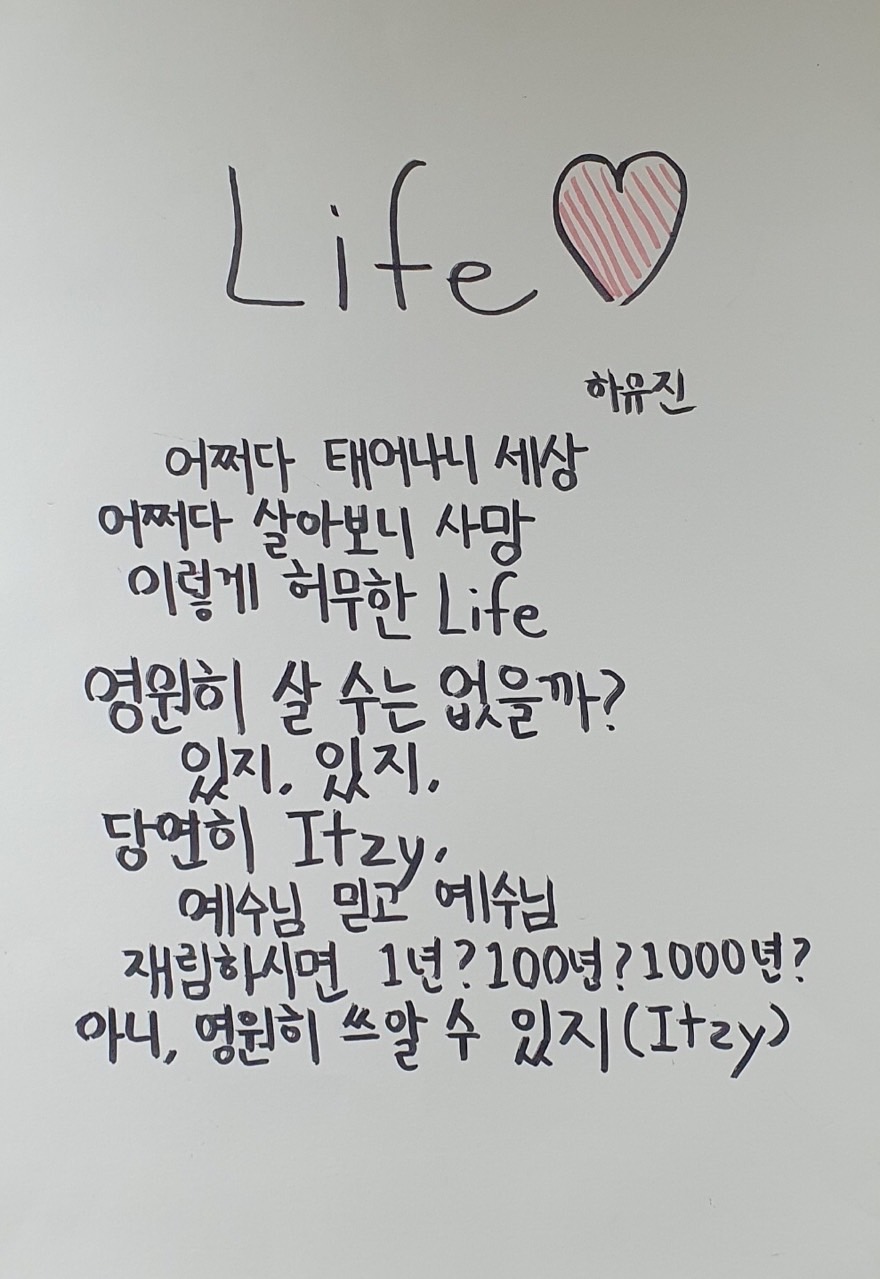 Life
하유진
어쩌다 태어나니 세상
어쩌다 살아보니 사망
이렇게 허무한 Life
영원히 살 수는 없을까?
있지. 있지.
당연히 Itzy.
예수님 믿고 예수님
재림하시면 1년?100년?1000년?
아니, 영원히 쓰알 수 있지(Itzy)